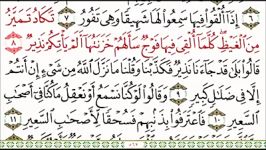 ٦ إِذَآ أُلْقُوا۟ فِيهَا سَمِعُوا۟ لَهَا شَهِيقًا وَهِىَ تَفُورُ ٧ تَكَادُ تَمَيَّزُ
مِنَ ٱلْغَيْظِ كُلَّمَآ أُلْقِىَ فِيهَا فَوْجٌ سَأَلَهُمْ خَزَنَتُهَآ أَلَمْ يَأْتِكُمْ نَذِيرٌ ٨
قَالُوا۟ بَلَىٰ قَدْ جَآءَنَا نَذِيرٌ فَكَذَّبْنَا وَقُلْنَا مَا نَزَّلَ ٱللَّهُ مِن شَىْءٍ إِنْ أَنتُمْ
إِلَّا فِى ضَلَٰلٍ كَبِيرٍ ٩ وَقَالُوا۟ لَوْ كُنَّا نَسْمَعُ أَوْ نَعْقِلُ مَا كُنَّا فِىٓ أَصْحَٰبِ
ٱلسَّعِيرِ ١٠ فَٱعْتَرَفُوا۟ بِذَنۢبِهِمْ فَسُحْقًا لِّأَصْحَٰبِ ٱلسَّعِيرِ ١١